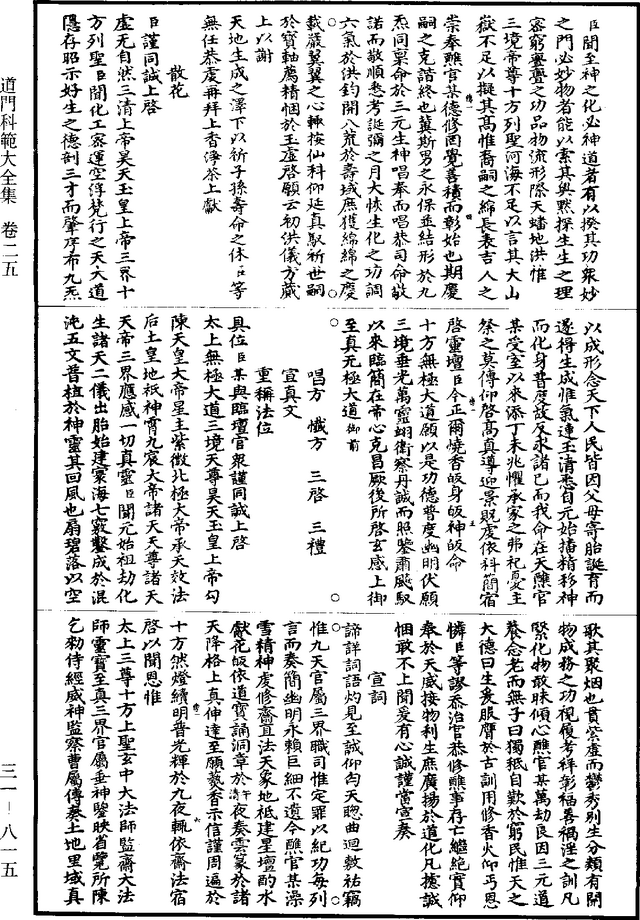 臣聞至神之化必神道者有以揆其功衆妙
之門必妙物者能以索其奧默探生生之理
密窮亹亹之功品物流形際天蟠地洪惟
三境帝尊十方列聖河海不足以言其大山
嶽不足以擬其髙惟裔嗣之綿長表吉人之
崇奉醮官某德修罔覺善積而彰始也期慶
嗣之克諧終也冀斯男之永保並結形於九
炁同稟命於三元生神唱奉而唱恭司命敬
諾而敬順悉考誕彌之月大恢生化之功調
六氣於洪鈞開八荒於壽域應獲綿綿之慶
載嚴翼翼之心輒按仙科仰延真馭祈世嗣
於寳軸薦精悃於玉虚啓願云初洪儀方蕆
上以謝
天地生成之澤下以祈子孫壽命之休臣等
無任恭虔再拜上香淨茶上獻
散花
臣謹同誠上啓
虚无自然三清上帝昊天玉皇上帝三界十
方列聖臣聞化工宻運空浮梵行之天大道
隱存昭示好生之德剖三才而肇序布九炁
以成形念天下人民皆因父母寄胎誕育而
遂得生成惟氣連玉清悉自元始播精移神
而化身普度故反求諸己而我命在天醮官
某受室以來添丁未兆懼承家之弗祀憂主
祭之莫傳仰啓髙真導迎景貺虔依科簡宿
啓靈壇臣今正爾燒香皈身皈神皈命
十方無極大道願以是功德普度幽明伏願
三境垂光萬靈翊衛察丹誠而照鑒肅飈馭
以來臨簡在帝心克昌厥後所啓玄感上御
至真无極大道御前
唱方 懺方 三啓 三禮
宣真文
重稱法位
具位臣某與臨壇官衆謹同誠上啓
太上無極大道三境天尊昊天玉皇上帝勾
陳天皇大帝星主紫微北極大帝承天效法
后土皇地祇神霄九宸大帝諸天天尊諸天
天帝三界應感一切真靈臣聞元始祖劫化
生諸天二儀出胎始建寰海七竅鑿成於混
沌五文普植於神靈其回風也扇碧落以空
歌其聚烟也貫雲虚而鬱秀别生分類有開
物成務之功視履考祥彰福善禍淫之訓凡
緊化物敢昧傾心醮官某萬劫良因三元道
養念老而無子曰獨秪自歎於窮民惟天之
大德曰生爰服膺於古訓用修香火仰丐恩
憐臣等謬忝治官恭修醮事存亡繼絶實仰
奉於天威接物利生庶廣揚於道化凡攄誠
悃敢不上聞爰有心誠謹當宣奏
宣詞
諦詳詞語灼見至誠仰匄天聰曲迴敷祐竊
惟九天官屬三界職司惟定罪以紀功每列
言而奏簡幽明永賴巨細不遺今醮官某澡
雪精神虔修齋直法天象地祇建星壇酌水
獻花皈依道寳誦洞章於午夜奏雲篆於諸
天降格上真伸達至願爇香示信謹周遍於
十方然燈續明普光輝於九夜輒依齋法宿
啓以聞恩惟
太上三尊十方上聖玄中大法師監齋大法
師靈寳至真三界官屬垂神鑒映省覽所陳
乞勑侍經威神監察曹屬傳奏土地里域真
道門科範大全集 卷二五
三一-八一五